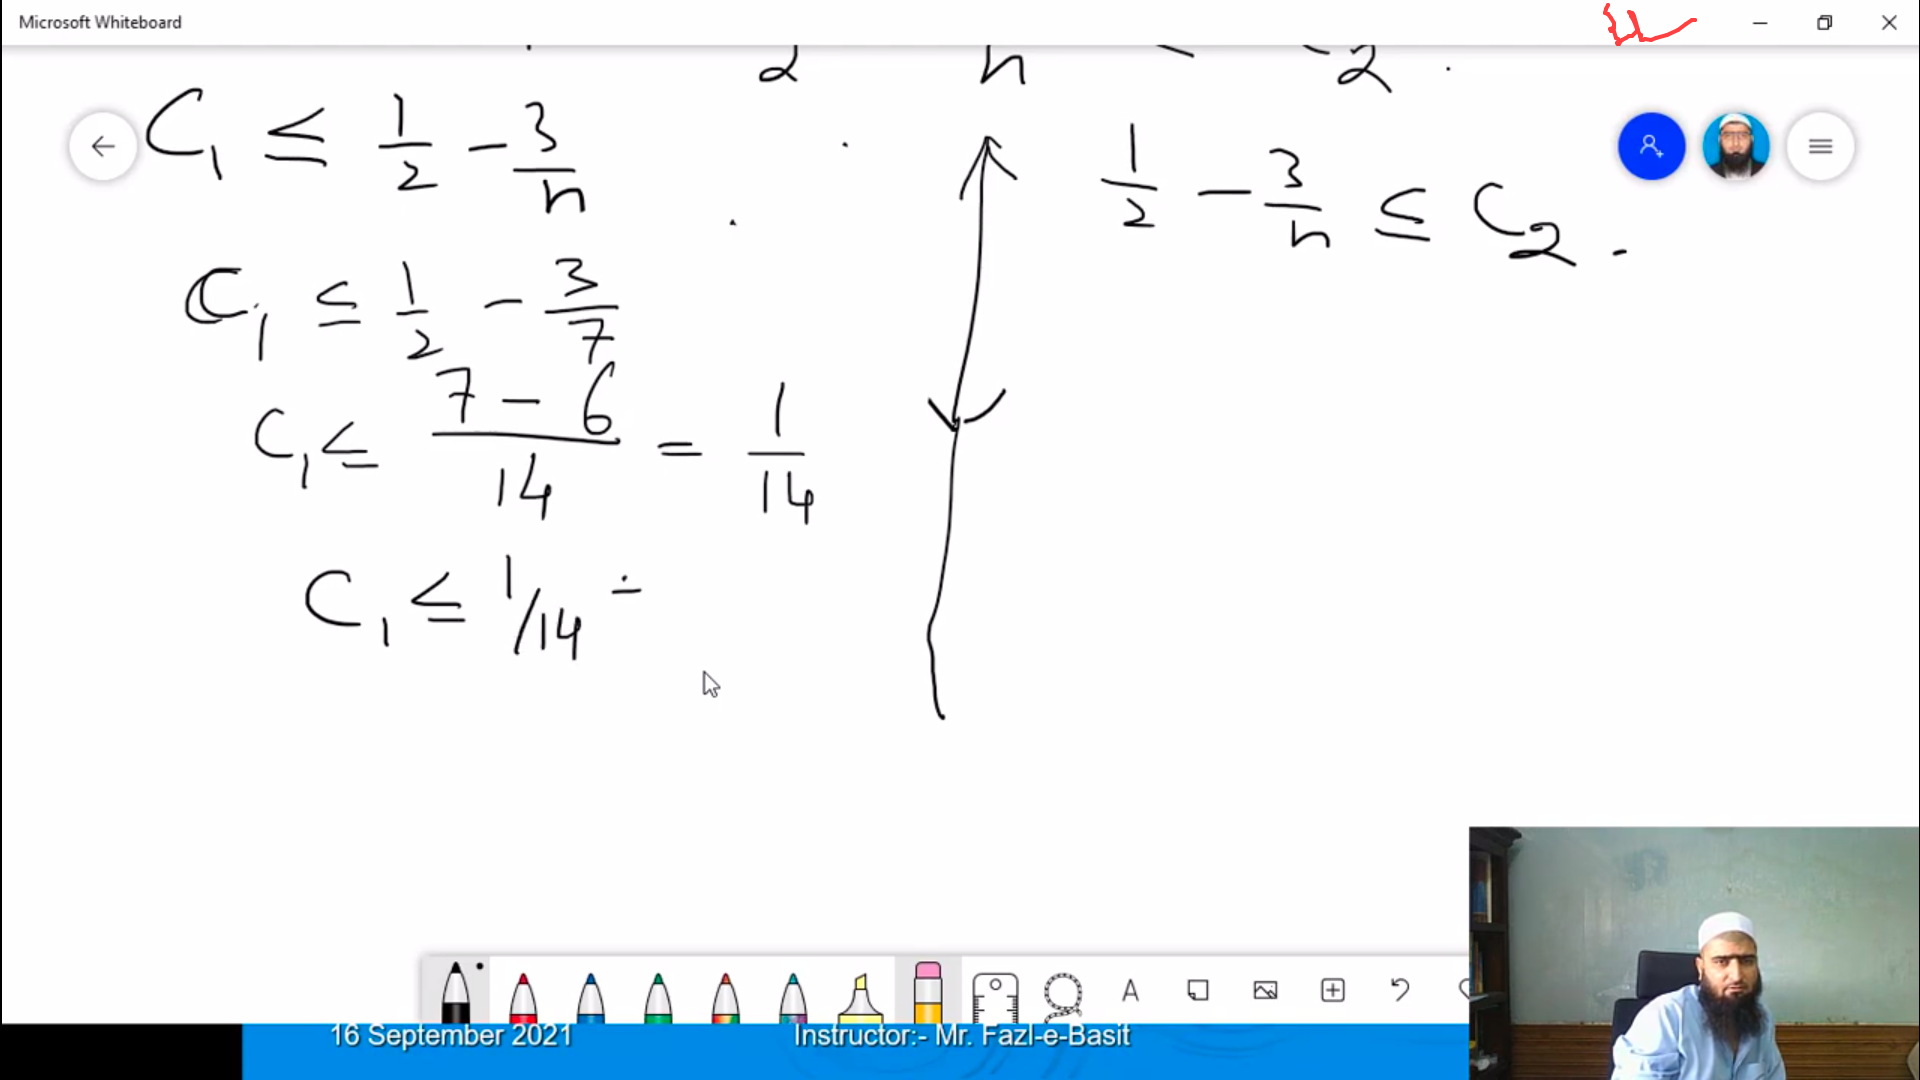 Microsoft Whiteboard
2 n C2 .
C1 ≤ 1/2 - 3/n
C1 ≤ 1/2 - 3/7
C1 ≤ (7 - 6)/14 = 1/14
C1 ≤ 1/14
1/2 - 3/n ≤ C2 .
A
16 September 2021
Instructor:- Mr. Fazl-e-Basit